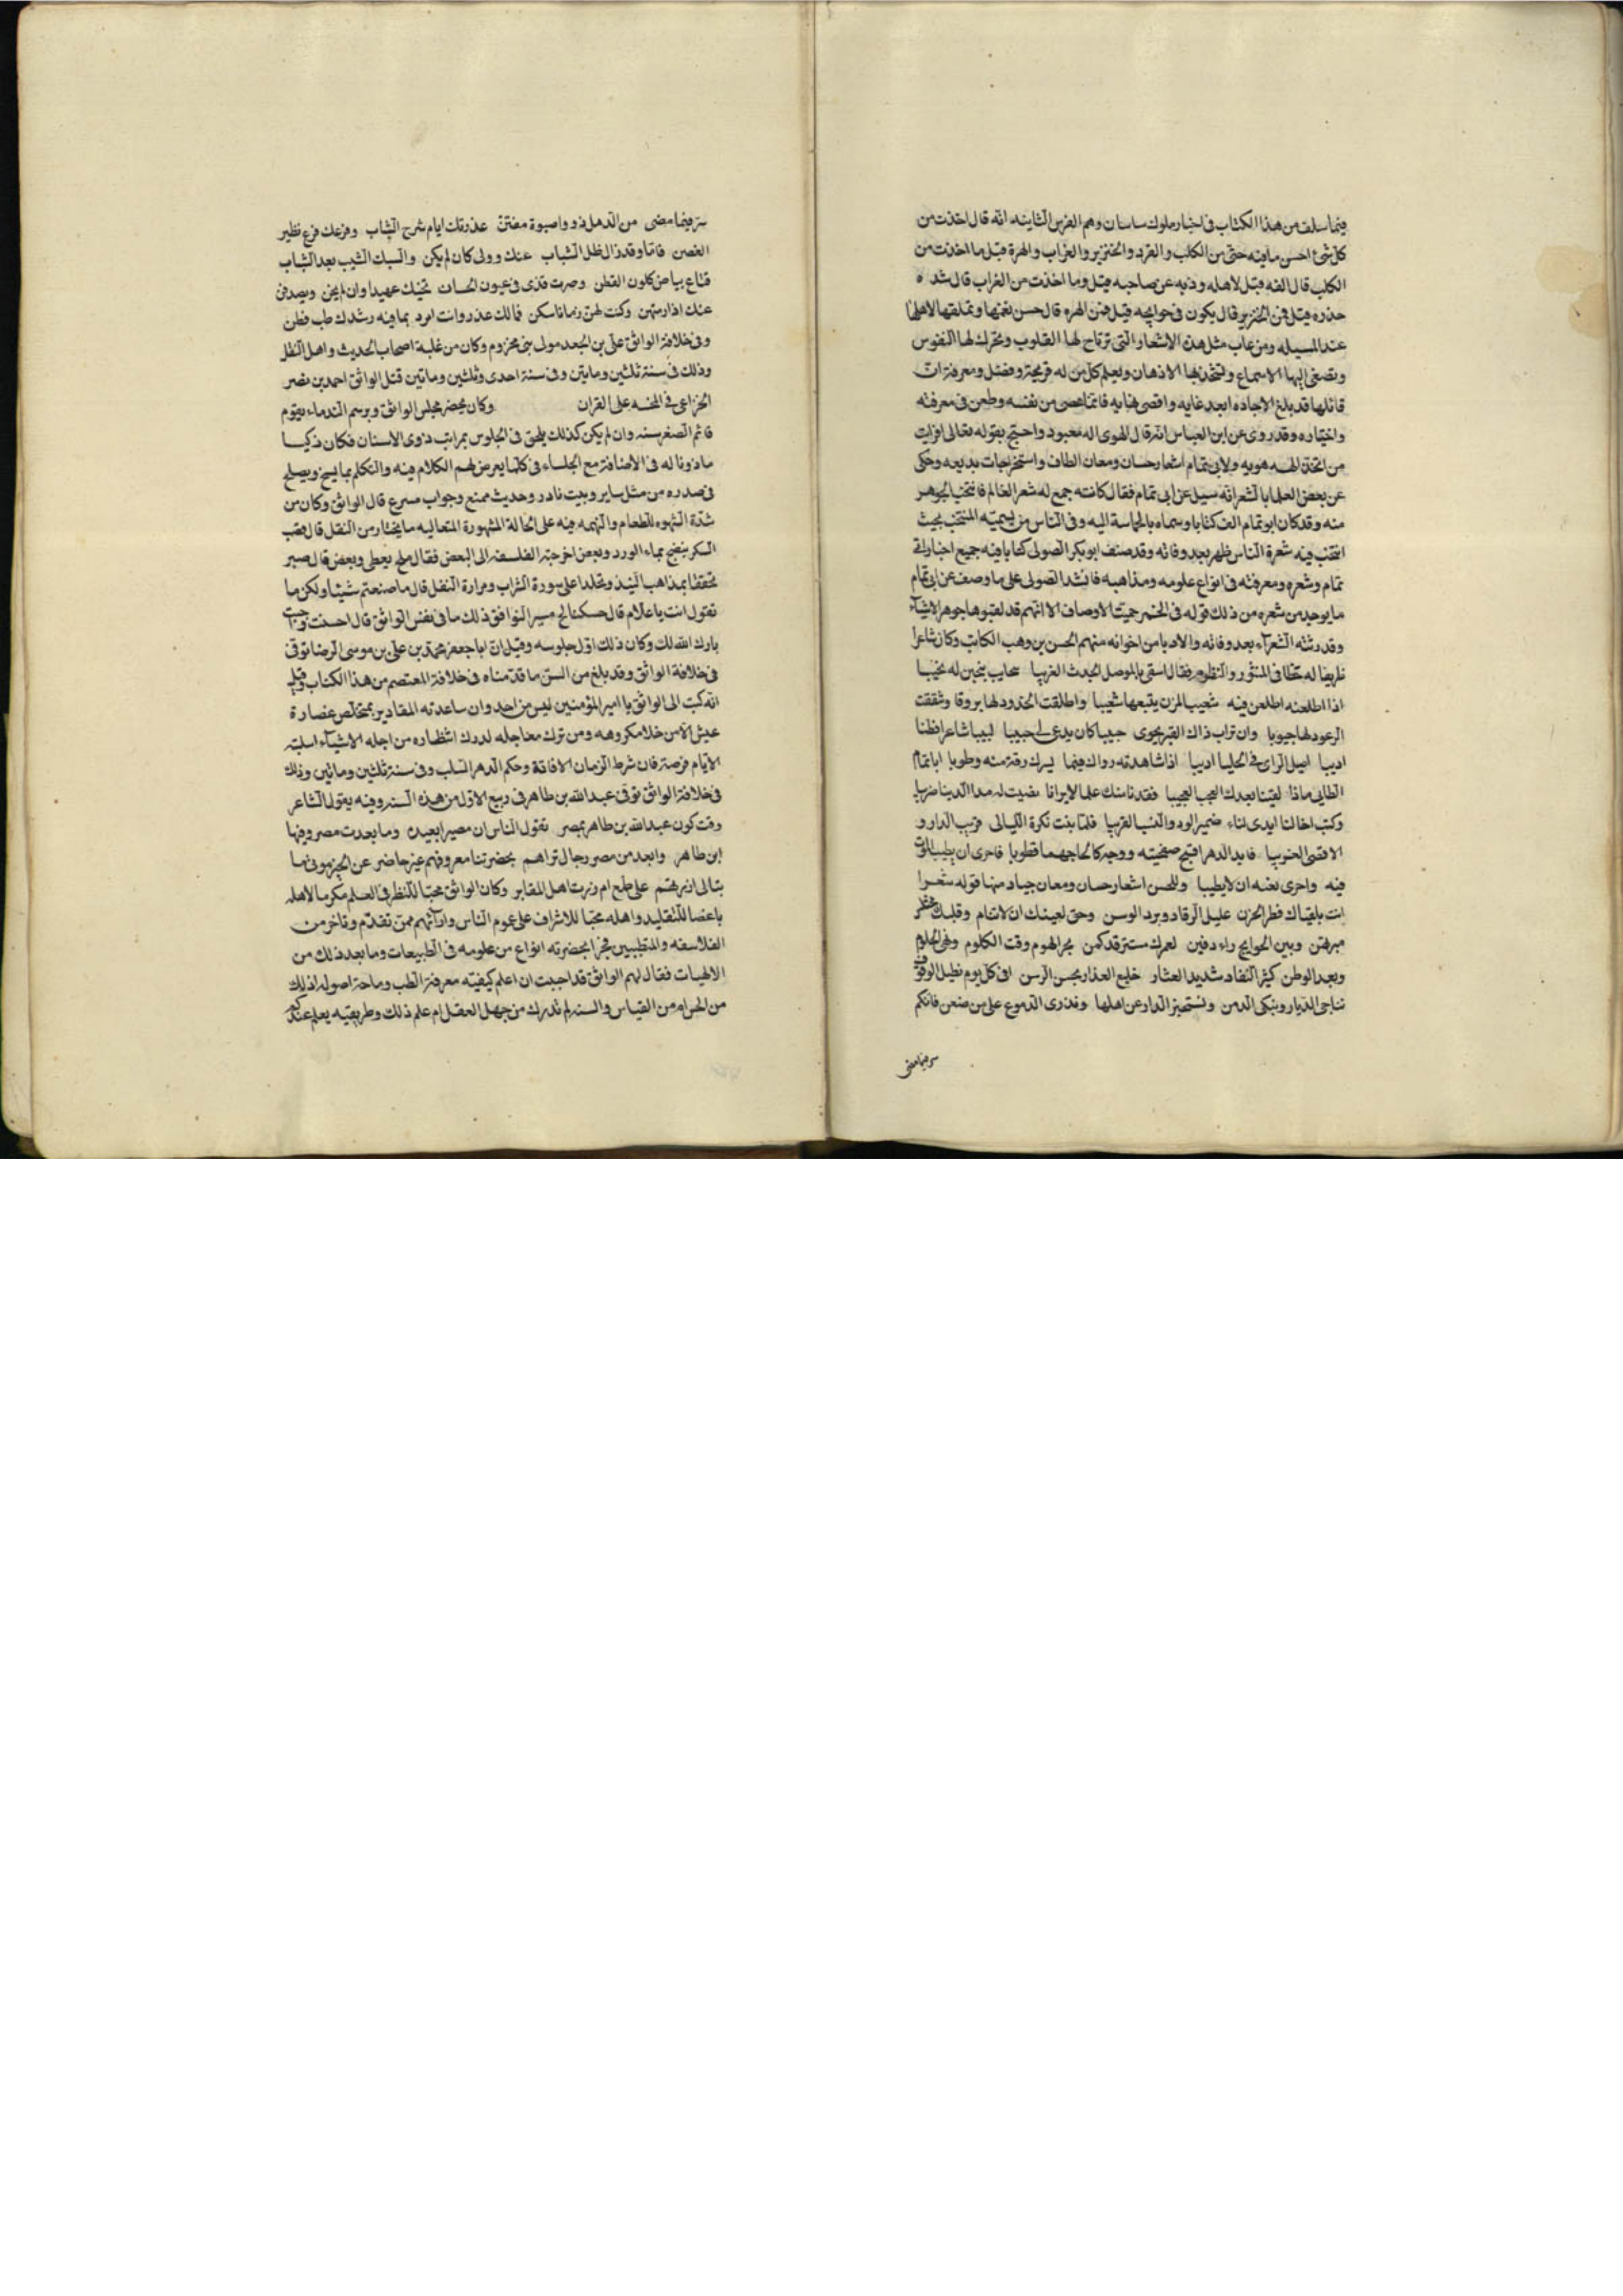 فيما سلف من هذا الكتاب فى اخبار ملوك ساسان وهم الفرس الثانيه انه قال اخذت من
كل شئ احسن ما فيه حتى من الكلب والقرد والخنزير والغراب والهرة قيل ما اخذت من
الكلب قال الفه قبل لاهله وذبه عن صاحبه قيل وما اخذت من الغراب قال شده
حذره قيل فمن الخنزير قال بكون فى حوايجه قيل فمن الهره قال حسن نغمها وتملقها لاهلها
عند المسيله ومن عاب مثل هذه الاشعار التى ترتاح لها القلوب وتحرك لها النفوس
وتصغى اليها الاسماع وتشحذ بها الاذهان ويعلم كل من له قريحة وفضل ومعرفة ان
قائلها قد بلغ الاجاده ابعد غايه واقصى نهايه فانما غض من نفسه وطعن فى معرفته
واختياره وقد روى عن ابن العباس انه قال الهوى اله معبود واحتج بقوله تعالى افرايت
من اتخذ الهه هويه ولابى تمام اشعار حسان ومعان الطاف واستخراجات بديعه وحكى
عن بعض العلما بالشعر انه سيل عن ابى تمام فقال كانه جمع له شعر العالم فانتخب الجوهر
منه وقد كان ابو تمام الف كتابا وسماه بالحماسة اليه وفى الناس من يسميه المنتخب بحيث
انتخب فيه شعرة الناس ظهر بعد وفاته وقد صنف ابو بكر الصولى كتابا فيه جميع اخبار ابى
تمام وشعره ومعرفته فى انواع علومه ومذاهبه فانشد الصولى على ما وصف عن ابى تمام
ما يوجد من شعره من ذلك قوله فى الخمر جهمية الاوصاف الا انهم قد لقبوها جوهر الاشياء
وقد رثته الشعرآء بعد وفاته والادبا من اخوانه منهم الحسن بن وهب الكاتب وكان شاعرا
ظريفا له حظا فى المنثور والمنظوم فقال اسقى بالموصل الجدث الغريبا سحايب ينتحبن له نحيبا
اذا اطلعنه اطلعن فيه شعيب المزن يتبعها شعيبا واطلقت الخدود لها بروقا وشققت
الرعود لها جيوبا وان تراب ذاك القبر يحوى حبيبا كان يدعى لى حبيبا لبيبا شاعرا فطنا
اديبا اصيل الراى فى الجليا اديبا اذا شاهدته رواك فيما يسرك رقة منه وطوبا ابا تمام
الطايى ماذا لقينا بعدك العجب العجيبا فقدنا منك علما لا يرانا نصيب له مدا الدينا ضريبا
وكنت اخا لنا ابدى لناء ضمير الود والنسب القريبا فلما بنت نكرة الليالى قريب الدار و
الاقصى الغريبا فابد الدهر اقبح صفحيته ووجه كالحا جهما قطوبا فاحرى ان يطيب الموت
فيه واحرى بعنه ان لا يطيبا وللحسن اشعار حسان ومعان جياد منها قوله شعرا
ابت بلقياك فطر الحزن عليل الرقاد وبرد الوسن وحق لعينك ان لا تنام وقلبك
مبرهتن وبين الحوايج راء دفين لعمرك مستتر قد كمن بحر الهموم وقت الكلوم ونفى الحلوم
وبعد الوطن كثير النفاد شديد العثار خليع العذار بحسن الرسن افى كل يوم تطيل الوقوف
تناجى الديار وتبكى الدمن وتستخبر الدار عن اهلها وتذرى الدموع على من ضعن فانكم
سر فيما مضى
سر فيما مضى من الدهل ذو واصبوة مفتتن عذرتك ايام شرح الشباب وفرعك فرع نظير
الغصن فاما وقد زال ظل الشباب عنك وولى كان لم يكن والبسك الشيب بعد الشباب
قناع بياض كلون القطن وصرت قذى فى عيون الحسان تخنك عهيدا وان لم يخن ويصدفن
عنك اذا رمتهن وكنت لهن زمانا سكن فما لك عذر وانت امرء بما فيه رشدك طب فطن
وفى خلافة الواثق على بن الجعد مولى بنى مخزوم وكان من غلبة اصحاب الحديث واهل النقل
وذلك فى سنة ثلثين ومايتين وفى سنة احدى وثلثين وماتين قتل الواثق احمد بن نصر
الخزاعى فى المحنه على القران وكان يحضر مجلس الواثق وبرسم الندماء يقوم
قائم الصغر سنه وان لم يكن كذلك يلحق فى الجلوس بمراتب ذوى الاسنان فكان ذكيا
ماذونا له فى الاضافة مع الجلساء فى كلما يعرض لهم الكلام فيه والتكلم بما يسنح ويصلح
فى صدره من مثل ساير وبيت نادر وحديث ممتع وجواب مسرع قال الواثق وكان من
شدة الشهوه للطعام والنهمه فيه على الحالة المشهورة المتعاليه ما يختار من النقل قال قصب
السكر ينضح بماء الورد وبعض اخرجته الفلسفه الى البعض فقال ملح يعطى وبعض قال صبر
محققا بمذاهب النبيذ وتجلدا على سورة الشراب ومرارة النقل قال ما صنعتم شيئا ولكن ما
تقول انت يا غلام قال خشكنانج مسير فوافق ذلك ما فى نفس الواثق قال احسنت وجيت
بارك الله لك وكان ذلك اول جلوسه وقيل ان ابا جعفر محمد بن على بن موسى الرضا توفى
فى خلافة الواثق وقد بلغ من السن ما قدمناه فى خلافة المعتصم من هذا الكتاب وقيل
انه كتب الى الواثق يا امير المؤمنين ليس من احد وان ساعدته المقادير بمتخلص غضارة
عيش الا من خلا مكروهه ومن ترك معاجله لدرك انتظاره من اجله الاشيآء اسلبته
الايام فرصته فان شرط الزمان الافاتة وحكم الدهر السلب وفى سنة ثلثين وماتين وذلك
فى خلافة الواثق توفى عبد الله بن طاهر فى ربيع الاول من هذه السنه وفيه يقول الشاعر
وقت كون عبد الله بن طاهر بمصر تقول الناس ان مصر ابعيده وما بعدت مصر وفيها
ابن طاهر وابعد من مصر رجال تراهم بحضرتنا معروفهم غير حاضر عن الخير موتى ما
يبالى ازرتهم على طمع ام زرت اهل المقابر وكان الواثق محبا للنظر فى العلم مكرما لاهله
باغضا للتقليد واهله محبا للاشراف على عموم الناس وارآئهم ممن تقدم وتاخر من
الفلاسفه والمتطببين فجرا بحضرته انواع من علومه فى الطبيعات وما بعد ذلك من
الالهيات فقال لهم الواثق قد احببت ان اعلم كيفيته معرفة الطب وماخذ اصوله اذلك
من الحس ام من القياس والسنه ام تدرك من جهل العقل ام علم ذلك وطريقيه يعلم عندكم